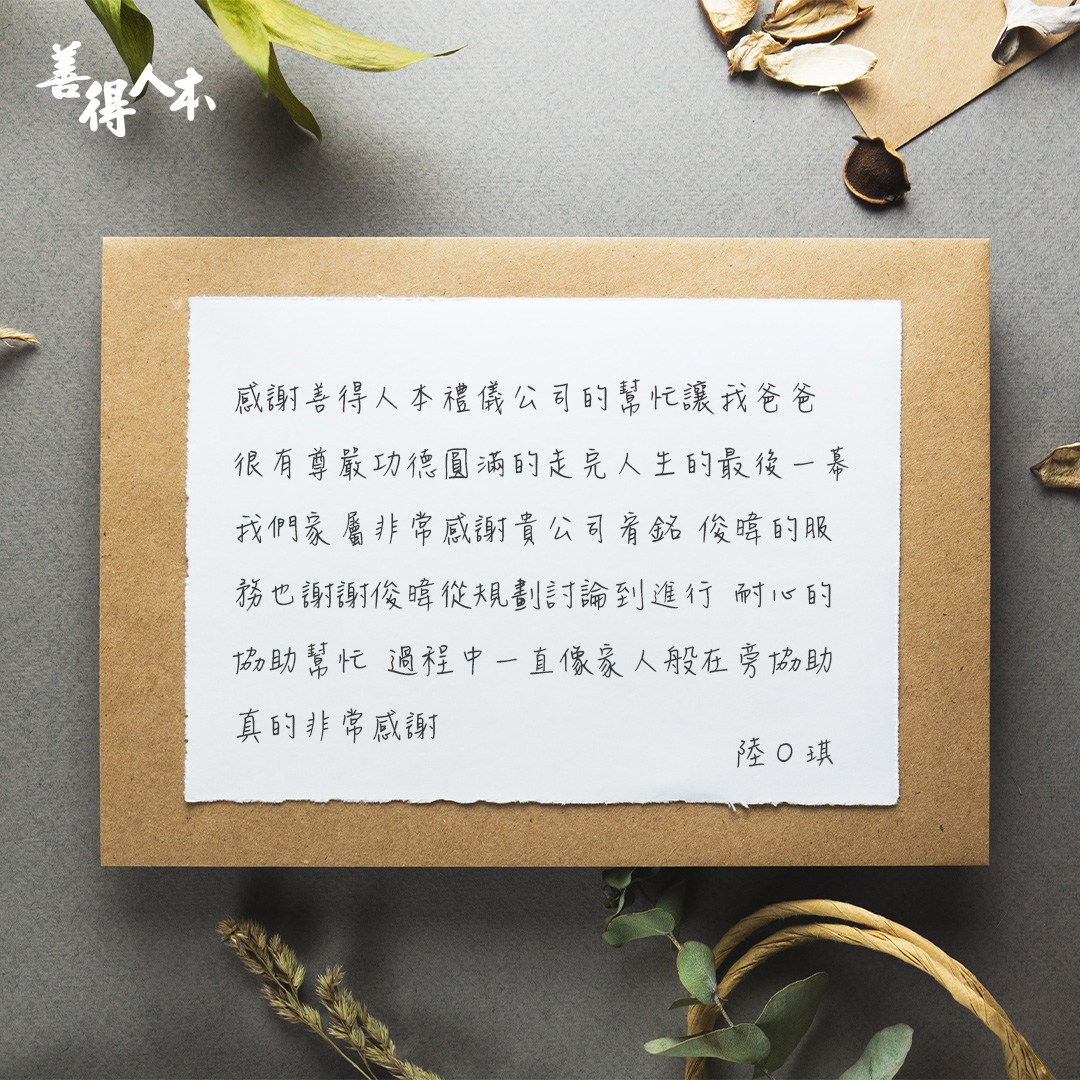 善得人本
感謝善得人本禮儀公司的幫忙讓我爸爸
很有尊嚴功德圓滿的走完人生的最後一幕
我們家屬非常感謝貴公司宥銘 俊暐的服
務也謝謝俊暐從規劃討論到進行 耐心的
協助幫忙 過程中一直像家人般在旁協助
真的非常感謝
陸O琪